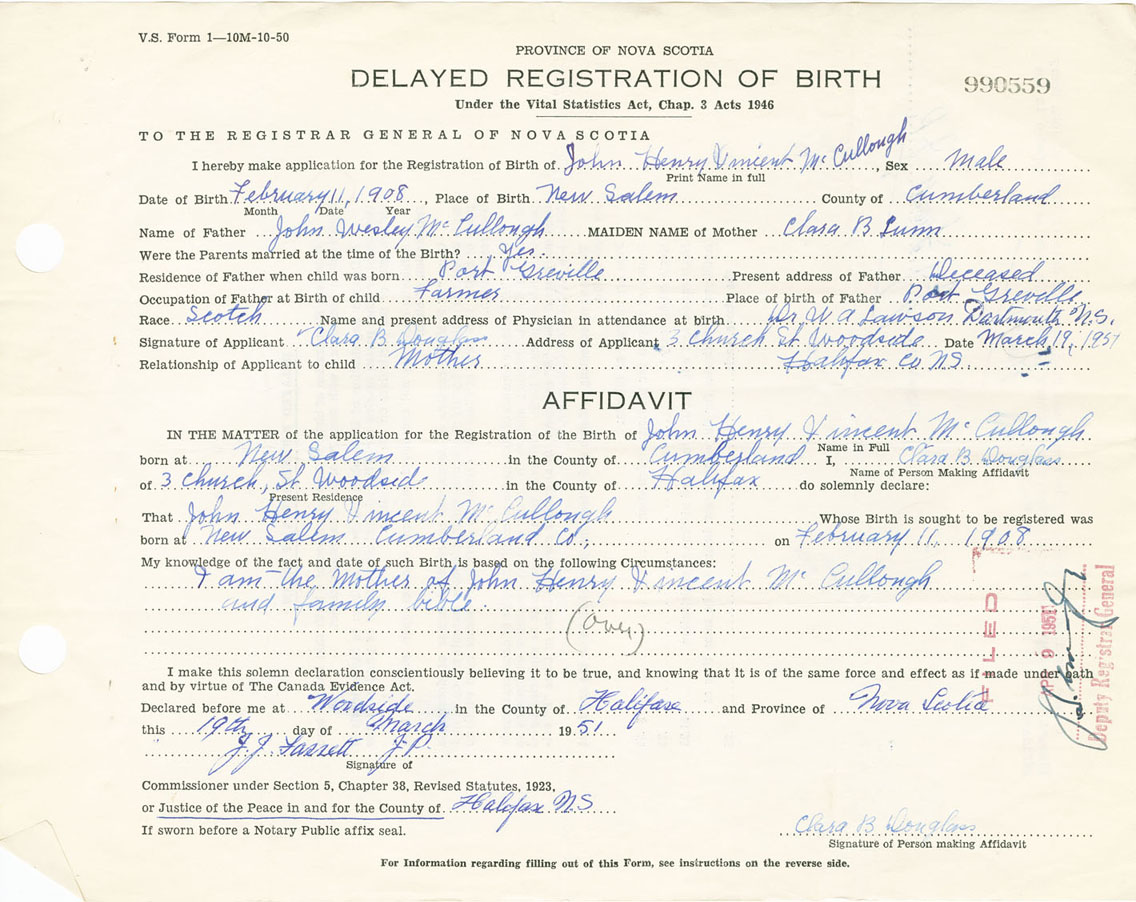 V.S. Form 1—10M-10-50
PROVINCE OF NOVA SCOTIA
DELAYED REGISTRATION OF BIRTH
990559
Under the Vital Statistics Act, Chap. 3 Acts 1946
TO THE REGISTRAR GENERAL OF NOVA SCOTIA
I hereby make application for the Registration of Birth of John Henry Vincent McCullough, Sex Male
Print Name in full
Date of Birth February 11, 1908, Place of Birth New Salem County of Cumberland
Month Date Year
Name of Father John Wesley McCullough MAIDEN NAME of Mother Clara B Lunn
Were the Parents married at the time of the Birth? Yes.
Residence of Father when child was born Port Greville Present address of Father Deceased
Occupation of Father at Birth of child Farmer Place of birth of Father Port Greville
Race Scotch Name and present address of Physician in attendance at birth Dr W A Lawson Dartmouth N.S.
Signature of Applicant Clara B Douglass Address of Applicant 3 Church St Woodside Date March 19, 1951
Relationship of Applicant to child Mother Halifax Co NS.
AFFIDAVIT
IN THE MATTER of the application for the Registration of the Birth of John Henry Vincent McCullough
Name in Full
born at New Salem in the County of Cumberland I, Clara B Douglass
Name of Person Making Affidavit
of 3 Church, St Woodside in the County of Halifax do solemnly declare:
Present Residence
That John Henry Vincent McCullough Whose Birth is sought to be registered was
born at New Salem Cumberland Co, on February 11, 1908
My knowledge of the fact and date of such Birth is based on the following Circumstances:
I am the Mother of John Henry Vincent McCullough
and family bible.
(Over)
FILED
1951
Deputy Registrar General
I make this solemn declaration conscientiously believing it to be true, and knowing that it is of the same force and effect as if made under oath
and by virtue of The Canada Evidence Act.
Declared before me at Woodside in the County of Halifax and Province of Nova Scotia
this 19th day of March 1951
J. J. Fassett J.P.
Signature of
Commissioner under Section 5, Chapter 38, Revised Statutes, 1923,
or Justice of the Peace in and for the County of Halifax N.S
If sworn before a Notary Public affix seal.
Clara B Douglass
Signature of Person making Affidavit
For Information regarding filling out of this Form, see instructions on the reverse side.